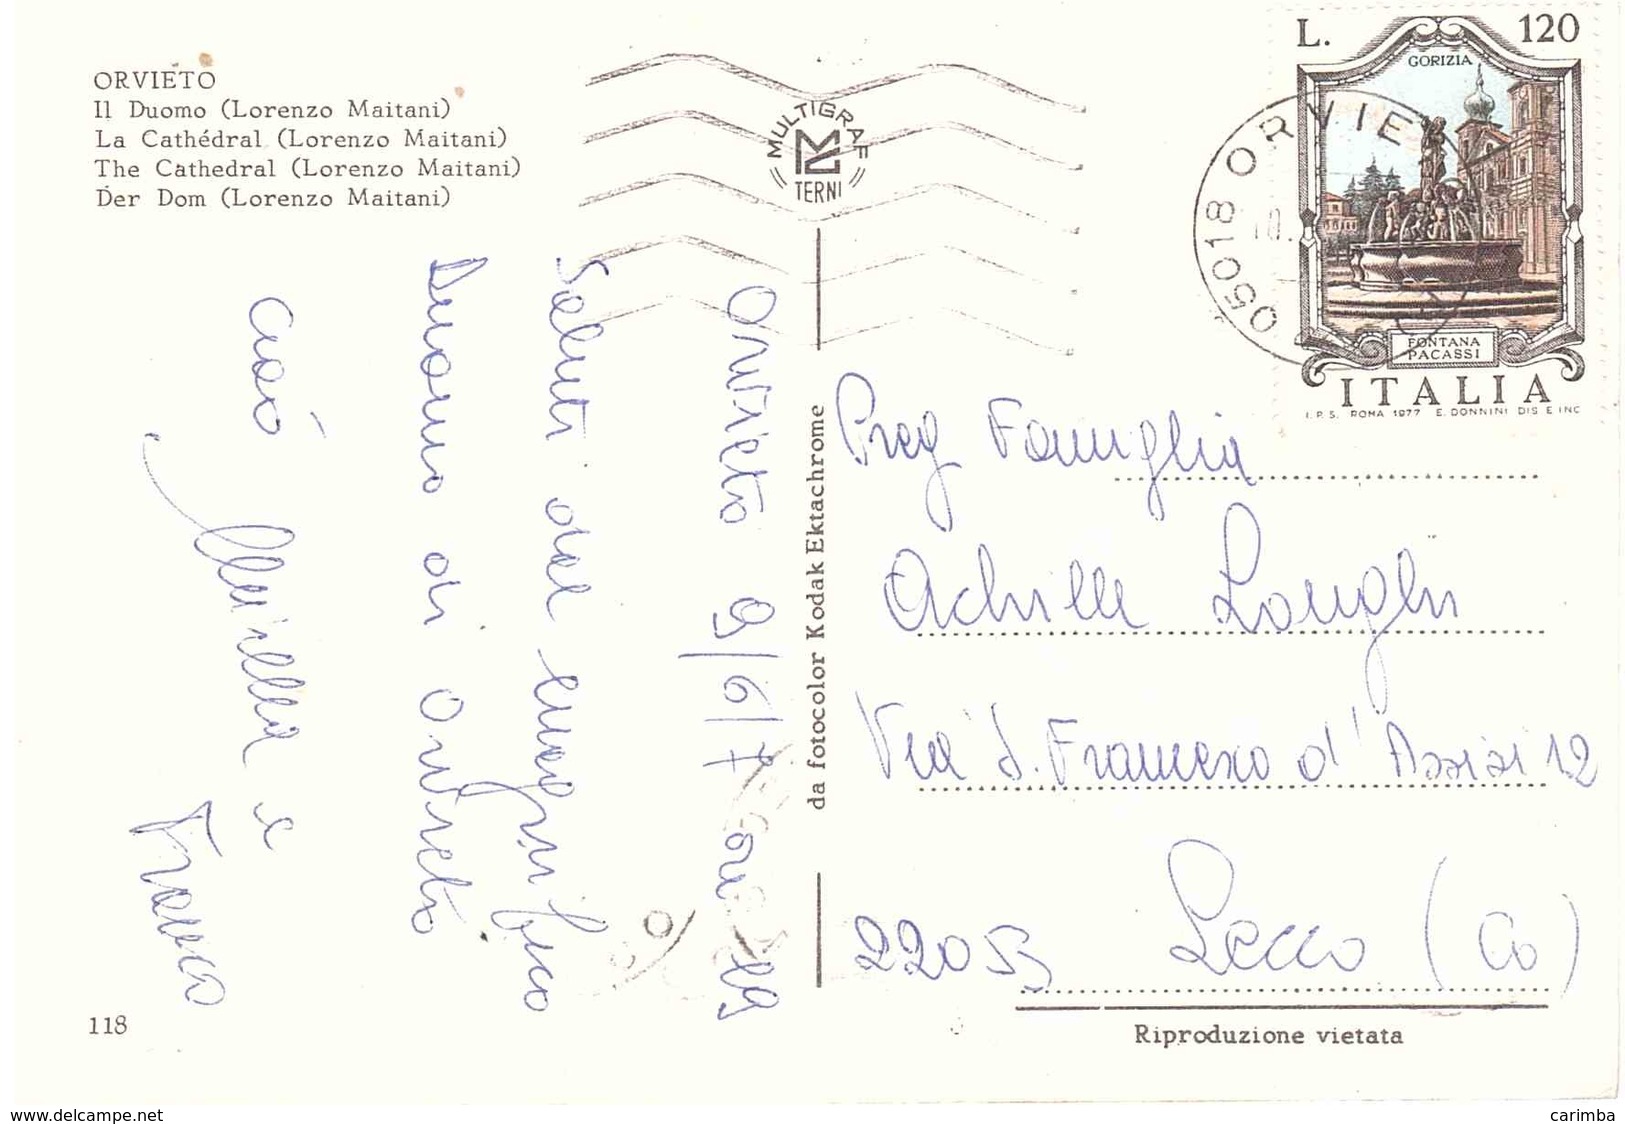 ORVIETO
Il Duomo (Lorenzo Maitani)
La Cathédral (Lorenzo Maitani)
The Cathedral (Lorenzo Maitani)
Der Dom (Lorenzo Maitani)
MULTIGRAF
TERNI
05018 ORVIE
10.
L. 120
GORIZIA
FONTANA
PACASSI
ITALIA
I.P.S. ROMA 1977 E. DONNINI DIS E INC
Orvieto 9/6/7
Saluti dal magnifico
Duomo di Orvieto
Ciao
Mirella e
Franco
da fotocolor Kodak Ektachrome
Preg Famiglia
Achille Longhi
Via S. Francesco d'Assisi 12
22053 Lecco (Co)
118
Riproduzione vietata
www.delcampe.net
carimba